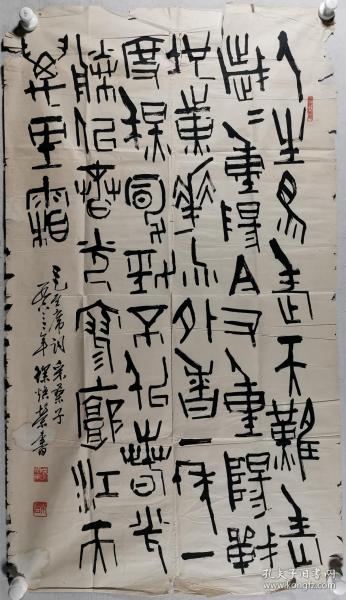 人生易老天難老
歲二重陽今又重陽戰
地黄華分外香一年一
度秋風勁不似春光
勝似春光寥廓江天
萬里霜
毛主席詞采桑子
年
書
孔夫子旧书网